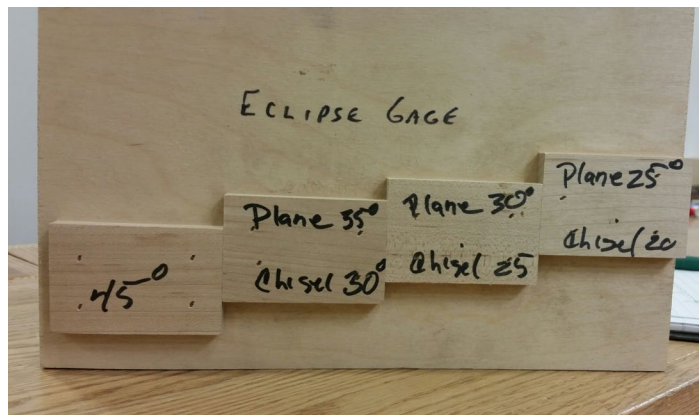 ECLIPSE GAGE
45°
Plane 35°
Chisel 30°
Plane 30°
Chisel 25
Plane 25°
Chisel 20